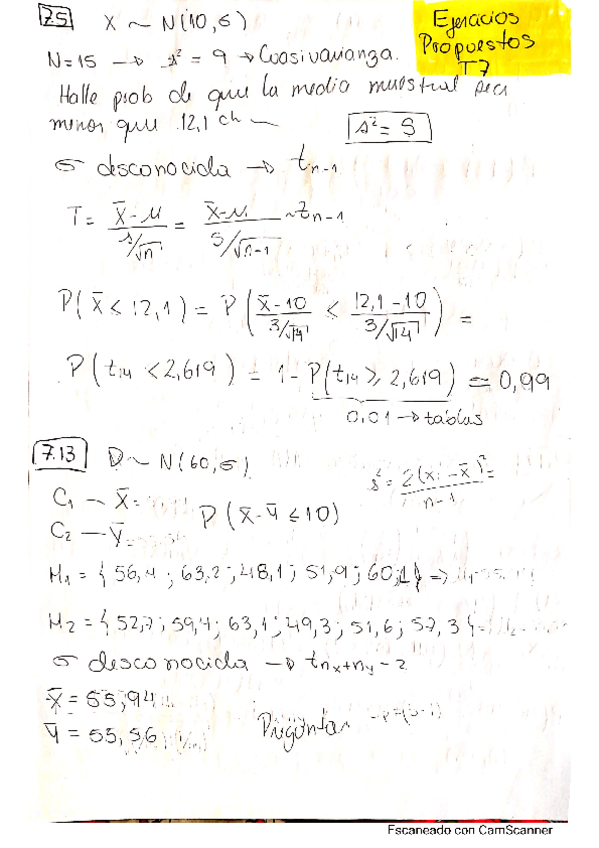 7.5 X ~ N(10, σ)
Ejercicios
Propuestos
T7
N=15 → s² = 9 → Cuasivarianza.
Halle prob de que la media muestral sea
menor que 12,1 ch
s² = 9
σ desconocida → t n-1
T = X̄-μ / s/√n = X̄-μ / S/√n-1 ~ t n-1
P(X̄ ≤ 12,1) = P( X̄-10 / 3/√14 < 12,1-10 / 3/√14 ) =
P(t14 < 2,619) = 1 - P(t14 ≥ 2,619) = 0,99
0,01 → tablas
7.13 D ~ N(60, σ)
s² = Σ(xi - x̄)² / n-1 =
C1 — X̄ =
P(X̄-Ȳ ≤ 10)
C2 — Ȳ =
M1 = { 56,4 ; 63,2 ; 48,1 ; 51,9 ; 60,1 } =>
M2 = { 52,7 ; 59,4 ; 63,1 ; 49,3 ; 51,6 ; 57,3 } =
σ desconocida → t nx+ny-2
X̄ = 55,94
Ȳ = 55,56
Preguntar
Escaneado con CamScanner